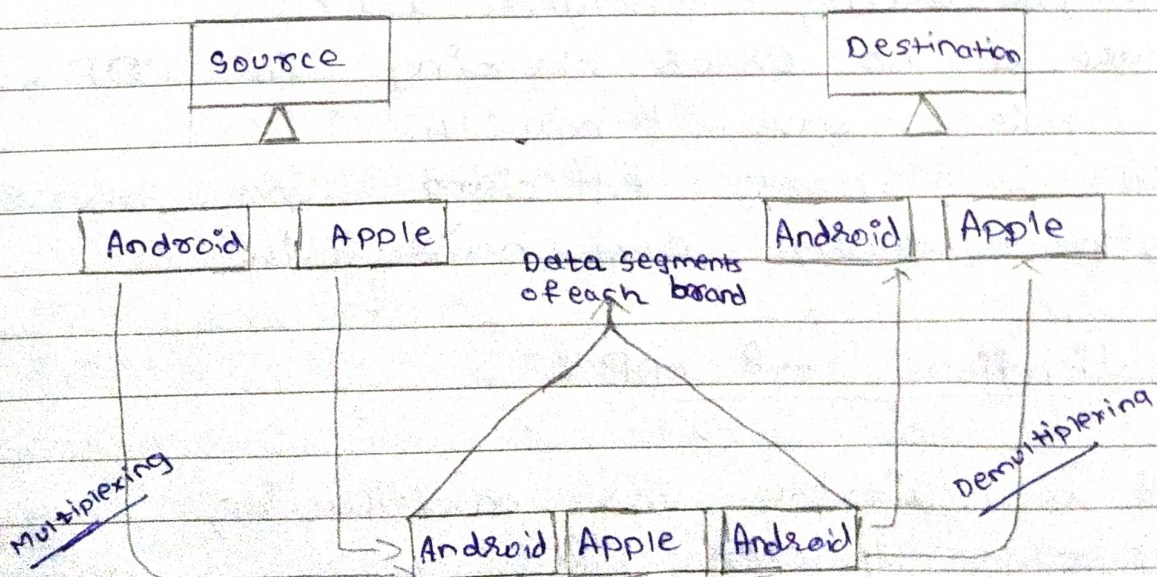 Source
Destination
Android
Apple
Android
Apple
Data segments
of each brand
Multiplexing
Demultiplexing
Android
Apple
Android